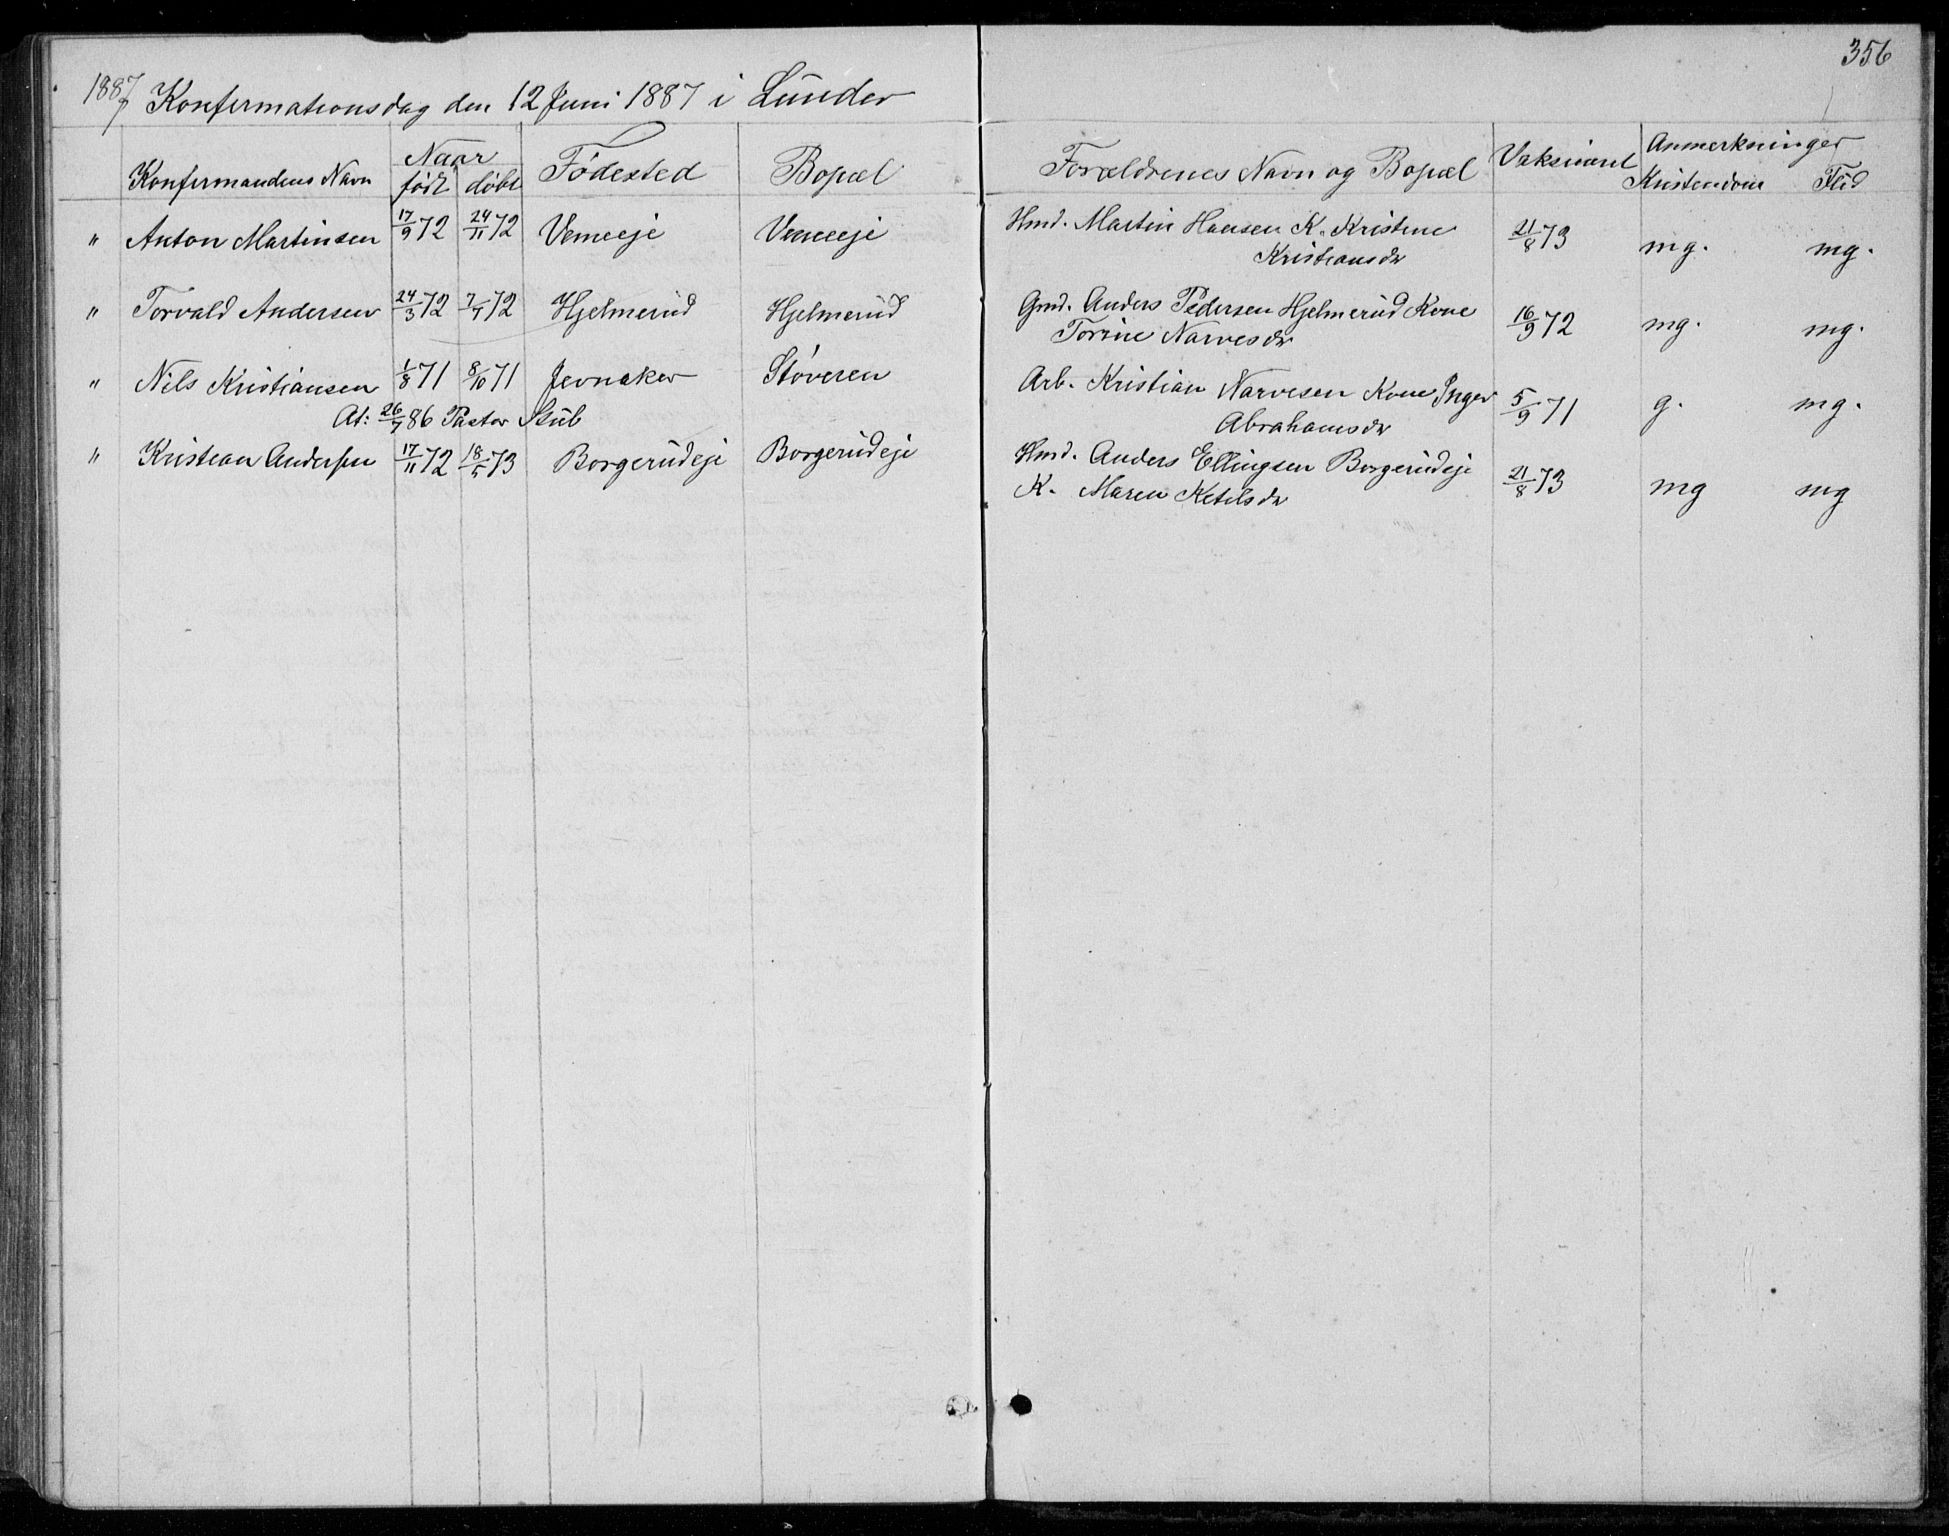 356
1887 Konfirmationsdag den 12 Juni 1887 i Lunder
Konfirmandens Navn | Naar født | døbt | Fødested | Bopæl | Forældrenes Navn og Bopæl | Vaksineret | Anmerkninger Kristendom | Flid
" Anton Martinsen | 17/9 72 | 24/11 72 | Vemeeje | Vemeeje | Hmd. Martin Hansen K. Kristine | 21/8 73 | mg. | mg.
Kristiansdr
" Torvald Andersen | 24/3 72 | 7/7 72 | Hjelmerud | Hjelmerud | Gmd. Anders Pedersen Hjelmerud Kone | 16/9 72 | mg. | mg.
Torine Narvesdr
" Nils Kristiansen | 1/8 71 | 8/10 71 | Jevnaker | Støveren | Arb. Kristian Narvesen Kone Inger | 5/9 71 | g. | mg.
At: 26/7 86 Pastor Stub | Abrahamsdr
" Kristian Andersen | 17/11 72 | 18/5 73 | Borgerudeje | Borgerudeje | Hmd. Anders Ellingsen Borgerudeje | 21/8 73 | mg | mg
K. Maren Ketilsdr